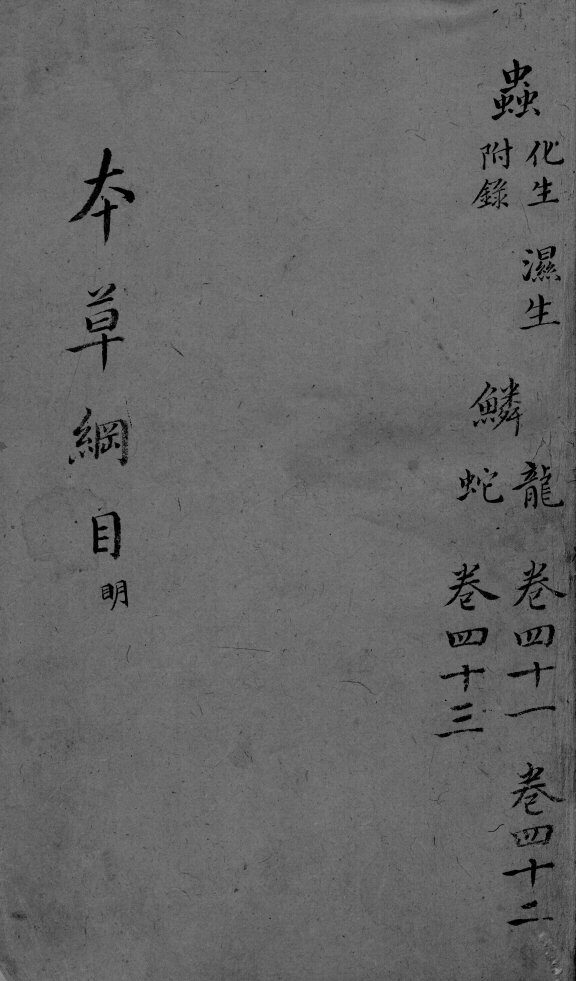 蟲
化生 濕生
附錄
鱗
龍 卷四十一 卷四十二
蛇 卷四十三
本草綱目 明